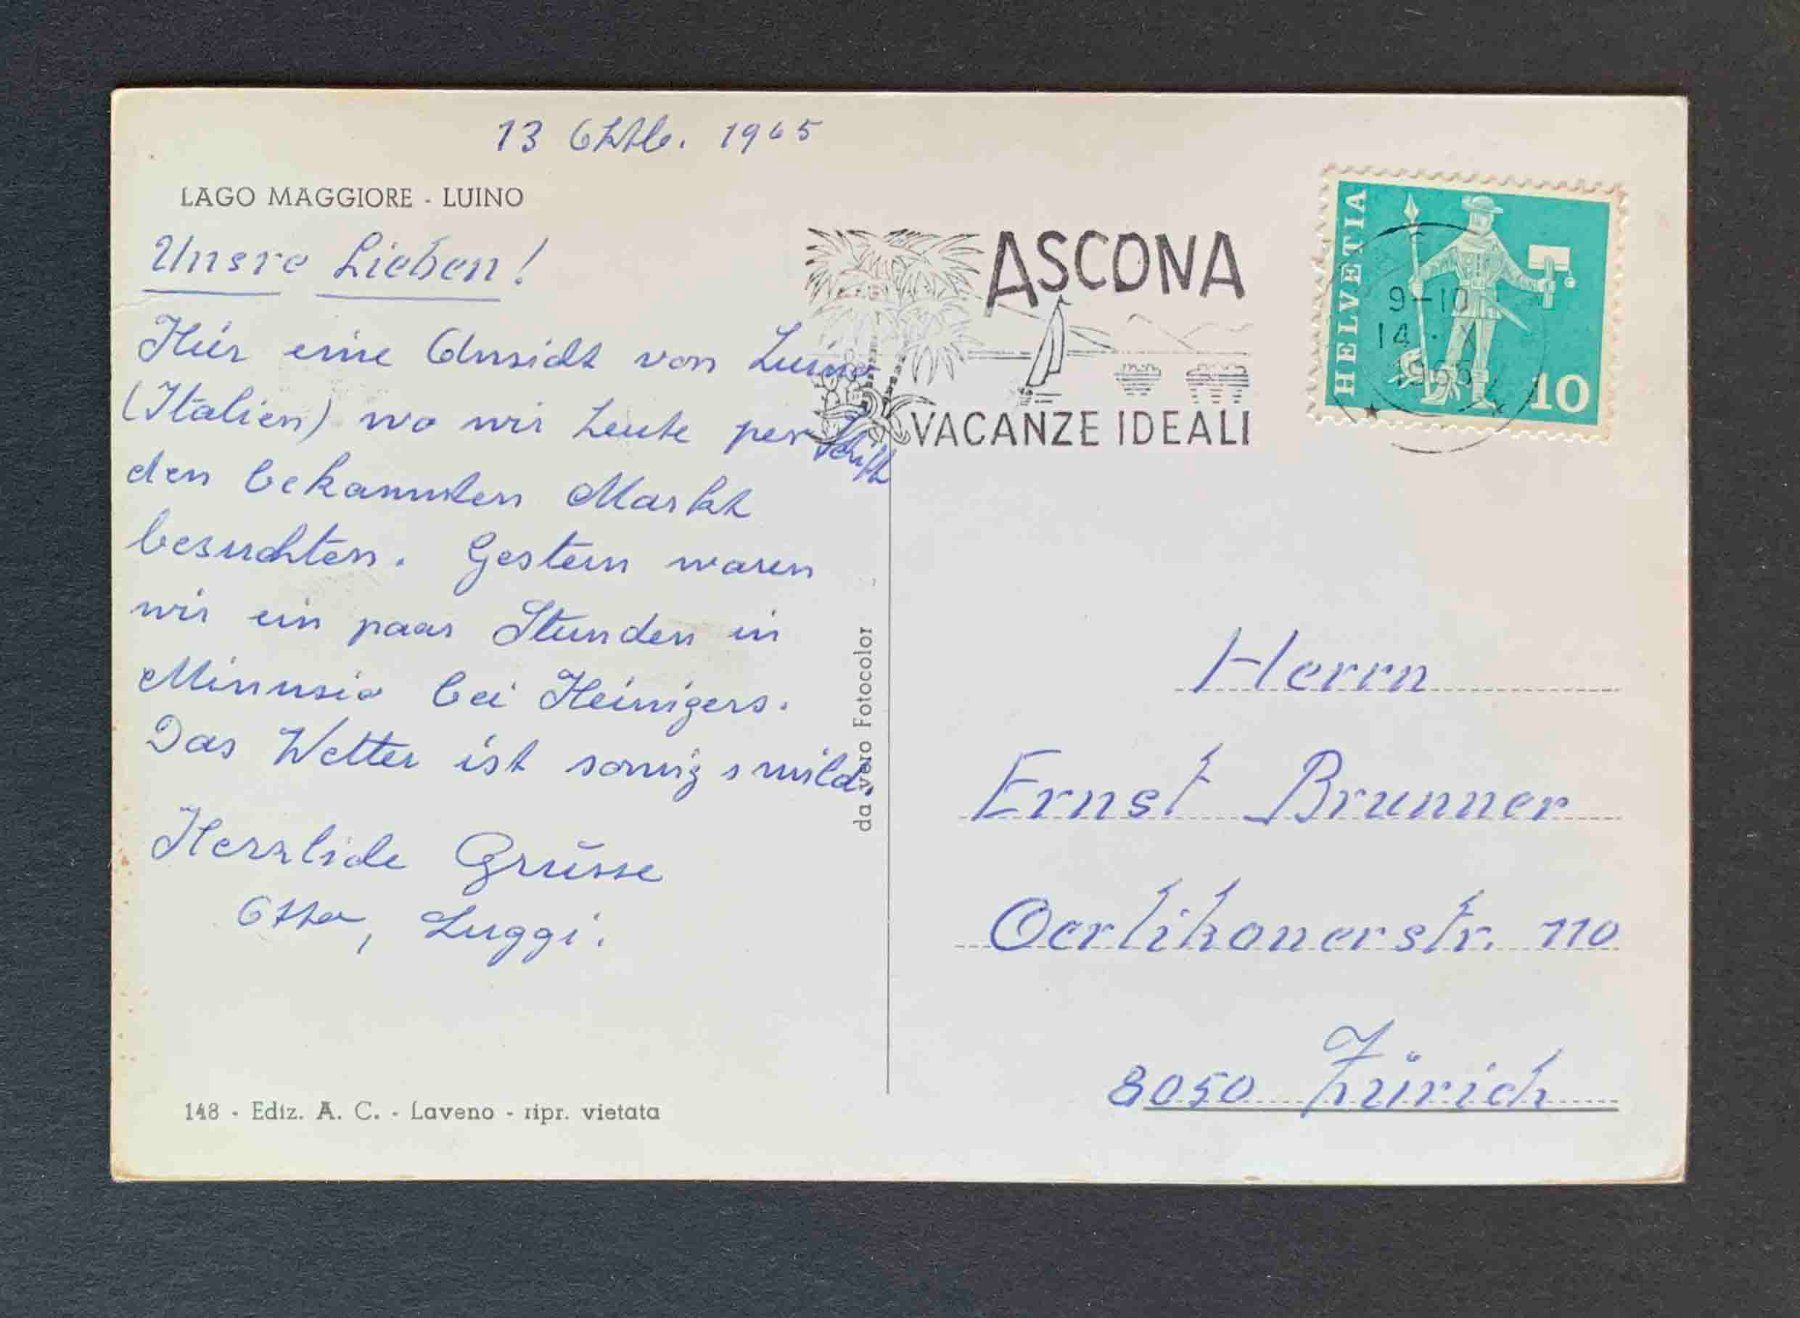 13 Oktb. 1965
LAGO MAGGIORE - LUINO
Unsre Lieben!
Hier eine Ansicht von Luino
(Italien) wo wir heute per Schiff
den bekannten Markt
besuchten. Gestern waren
wir ein paar Stunden in
Minusio bei Heinigers.
Das Wetter ist sonnig & mild.
Herzliche Grüsse
Otto, Luggi.
148 - Ediz. A. C. - Laveno - ripr. vietata
da vero Fotocolor
ASCONA
VACANZE IDEALI
HELVETIA
10
9-10
14. X
1965
Herrn
Ernst Brunner
Oerlikonerstr. 110
8050 Zürich